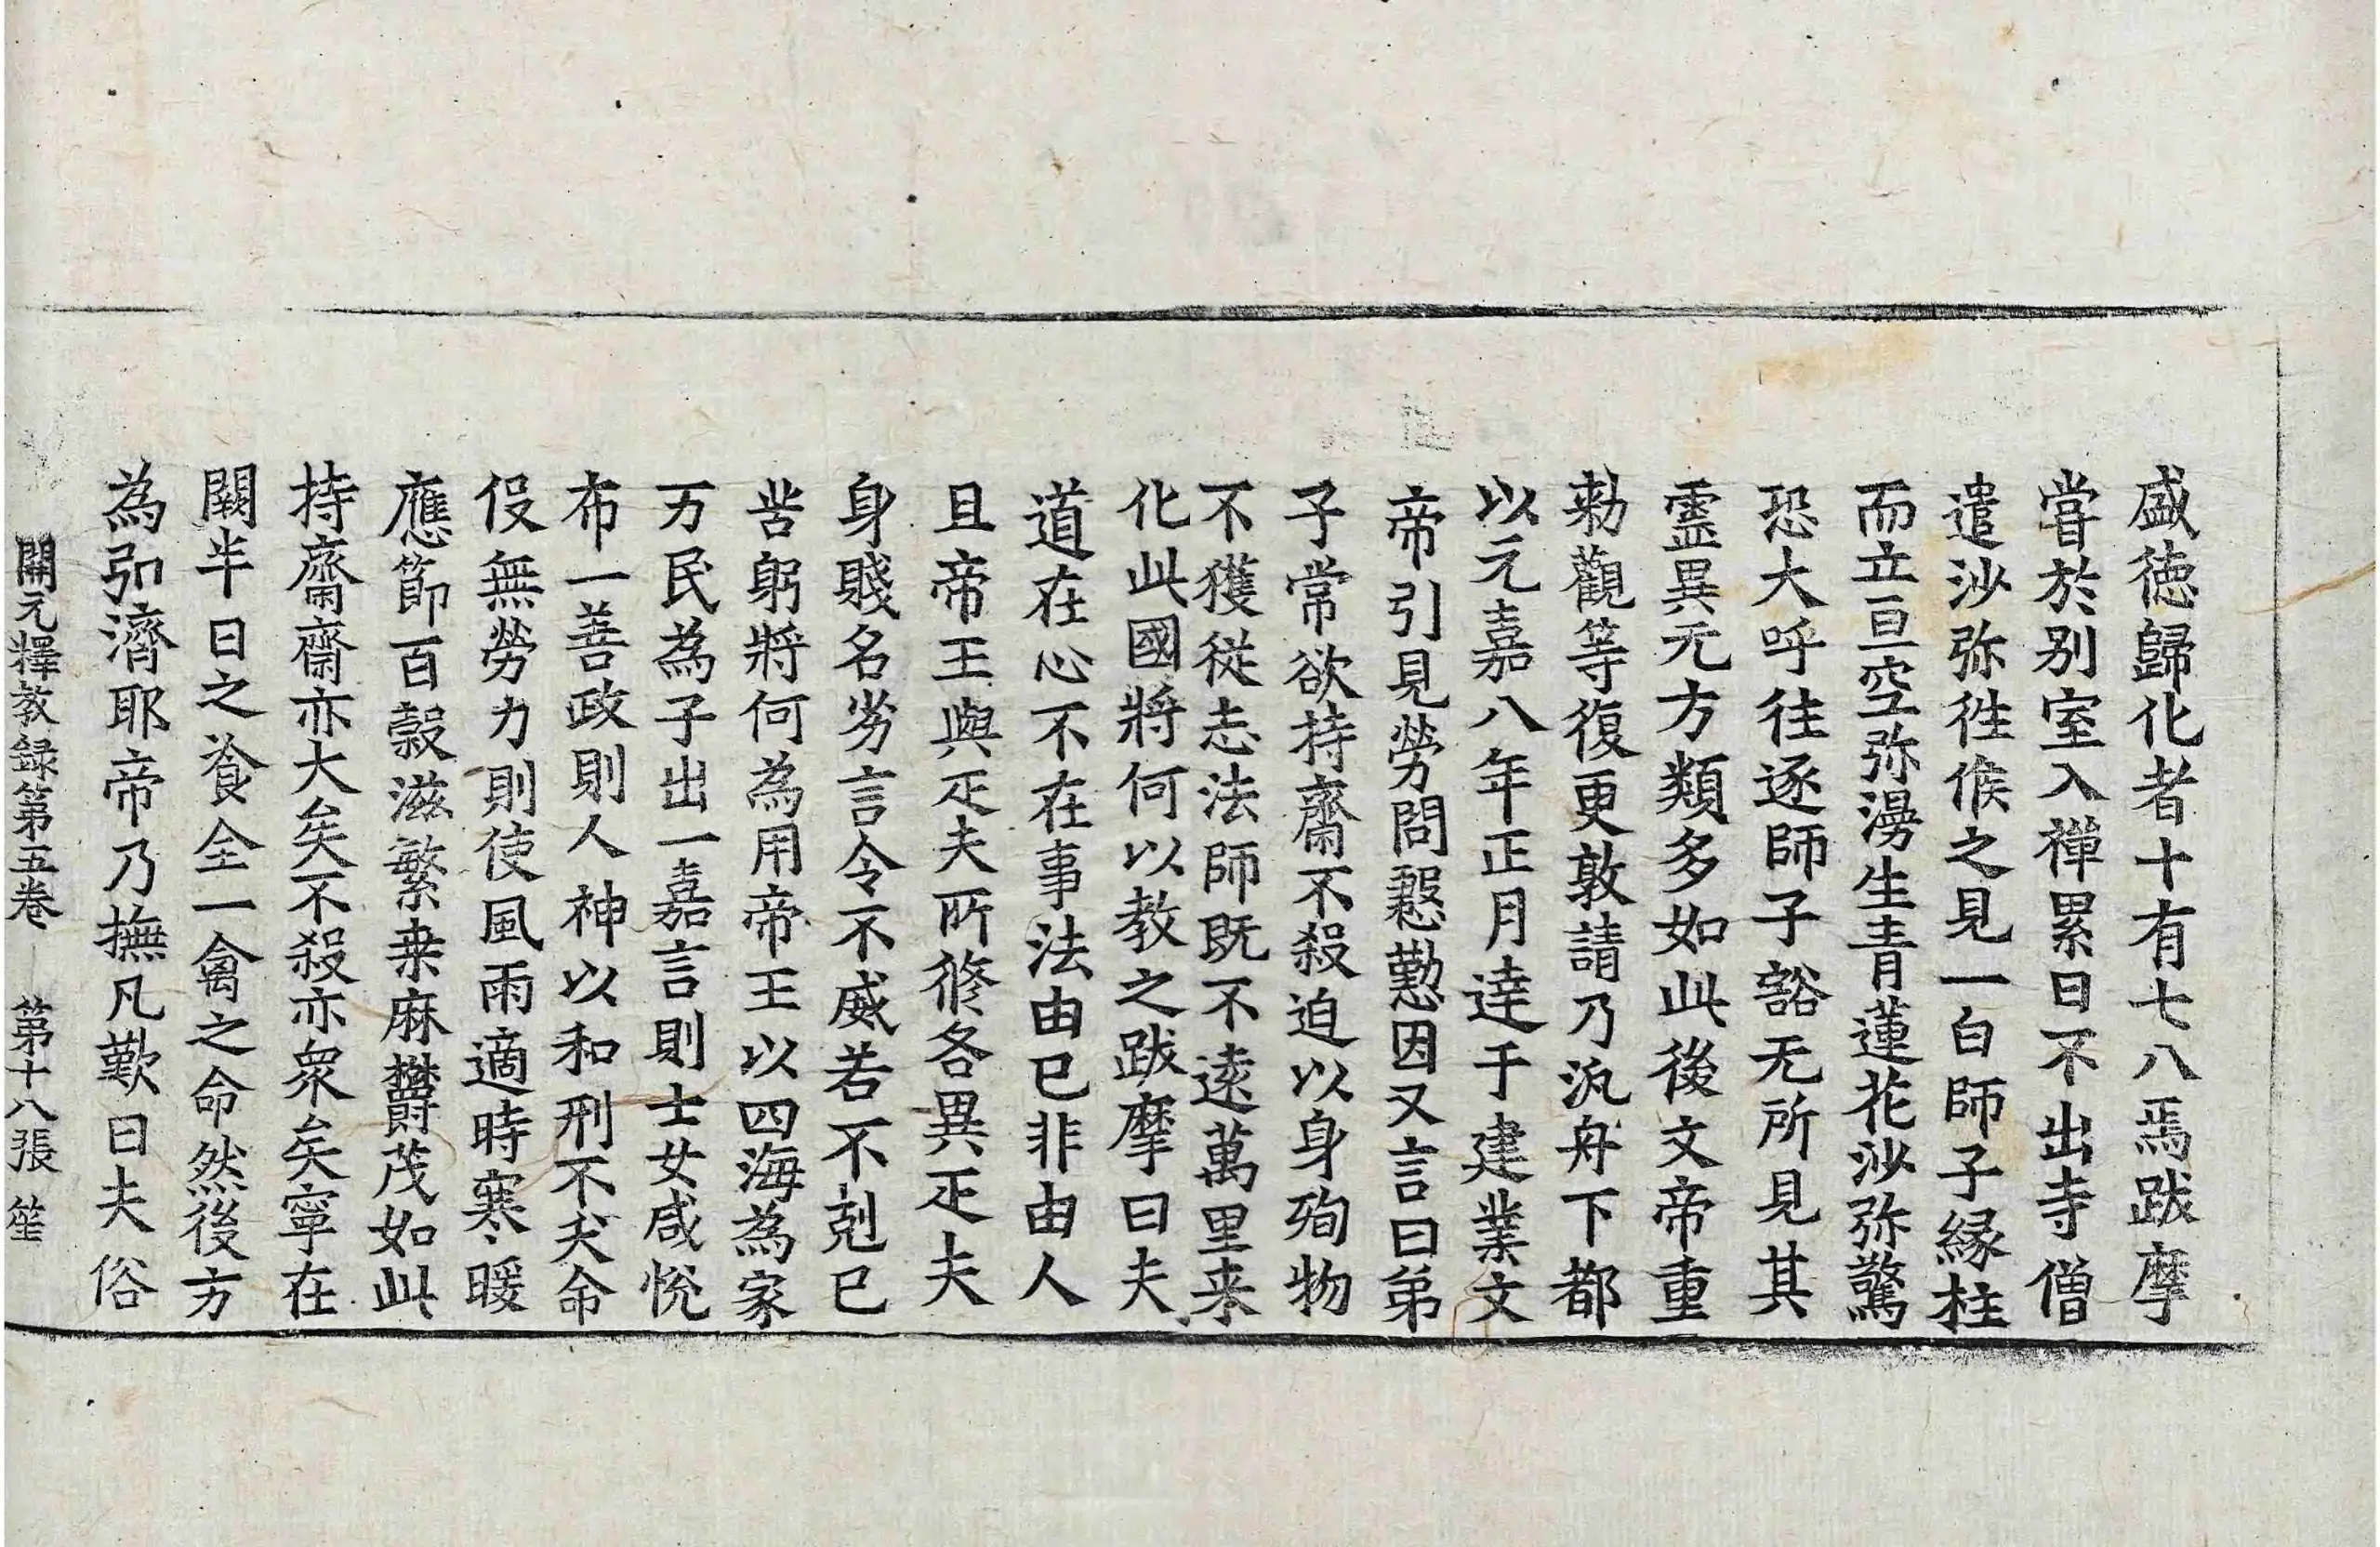 盛徳歸化者十有七八焉跋摩
甞於别室入禪累日不出寺僧
遣沙弥徃候之見一白師子縁柱
而立亘空弥漫生青蓮花沙弥驚
恐大呼往逐師子豁无所見其
霊異无方類多如此後文帝重
勑觀等復更敦請乃汎舟下都
以元嘉八年正月達于建業文
帝引見勞問慇懃因又言曰弟
子常欲持齋不殺迫以身殉物
不獲從志法師既不遠萬里来
化此國將何以教之跋摩曰夫
道在心不在事法由已非由人
且帝王與疋夫所修各異疋夫
身賤名劣言令不威若不剋已
苦躬將何為用帝王以四海為家
万民為子出一嘉言則士女咸悅
布一善政則人神以和刑不夭命
役無勞力則使風雨適時寒暖
應節百穀滋繁桒麻欝茂如此
持齋齋亦大矣不殺亦衆矣寧在
闕半日之飡全一禽之命然後方
為弘濟耶帝乃撫凡歎曰夫俗
開元釋教録第五卷 第十八張 笙